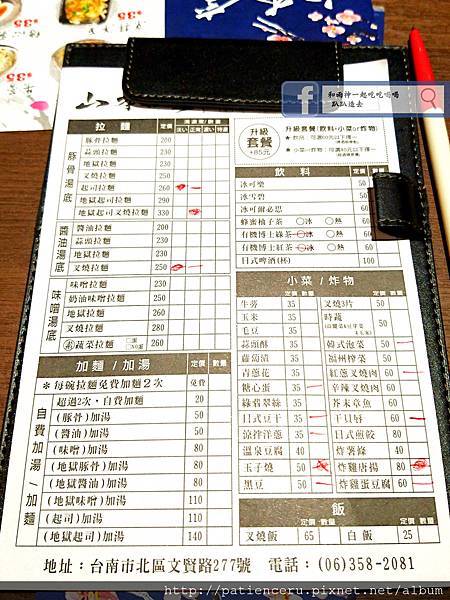 和雨神一起吃吃喝喝
趴趴造去
山
拉麵 定價 濃湯度/數量
淡い 正常 濃い 特濃
豚骨湯底
豚骨拉麵 200
蒜頭拉麵 210
地獄拉麵 210
叉燒拉麵 250
起司拉麵 260
地獄起司拉麵 290
地獄起司叉燒拉麵 330
醬油湯底
醬油拉麵 200
蒜頭拉麵 210
地獄拉麵 210
叉燒拉麵 250
味噌湯底
味噌拉麵 210
奶油味噌拉麵 230
地獄拉麵
叉燒拉麵 280
素 蔬菜拉麵 260
加麵/加湯 定價 數量
*每碗拉麵免費加麵2次 免費
自費加湯/加麵
超過2次,自費加麵 20
(豚骨)加湯 50
(醬油)加湯 50
(味噌)加湯 80
(地獄豚骨)加湯 80
(地獄醬油)加湯 80
(地獄味噌)加湯 110
(起司)加湯 110
(地獄起司)加湯 140
升級套餐 +85元
升級套餐(飲料+小菜or炸物)
飲料 定價 數量
冰可樂 50
冰雪碧 50
冰可爾必思 50
蜂蜜柚子茶 ○冰 ○熱 60
有機博士綠茶 ○冰 ○熱 60
有機博士紅茶 ○冰 ○熱 60
日式啤酒(杯) 100
小菜/炸物
定價 數量 定價 數量
牛蒡 35 叉燒3片 50
玉米 35 時蔬 50
毛豆 35
蒜頭酥 35 韓式泡菜 50
蘿蔔漬 35 福州榨菜 50
青蔥花 35 紅蔥叉燒肉 60
糖心蛋 35 辛辣叉燒肉 60
綠翡翠絲 35 芥末章魚 60
日式豆干 35 干貝唇 60
涼拌洋蔥 35 日式煎餃 80
溫泉豆腐 40 炸薯條 50
玉子燒 50 炸雞唐揚 80
黑豆 50 炸雞蛋豆腐 60
飯
定價 數量 定價 數量
叉燒飯 65 白飯 25
地址:台南市北區文賢路277號 電話:(06)358-2081
http://patienceru.pixnet.net/album